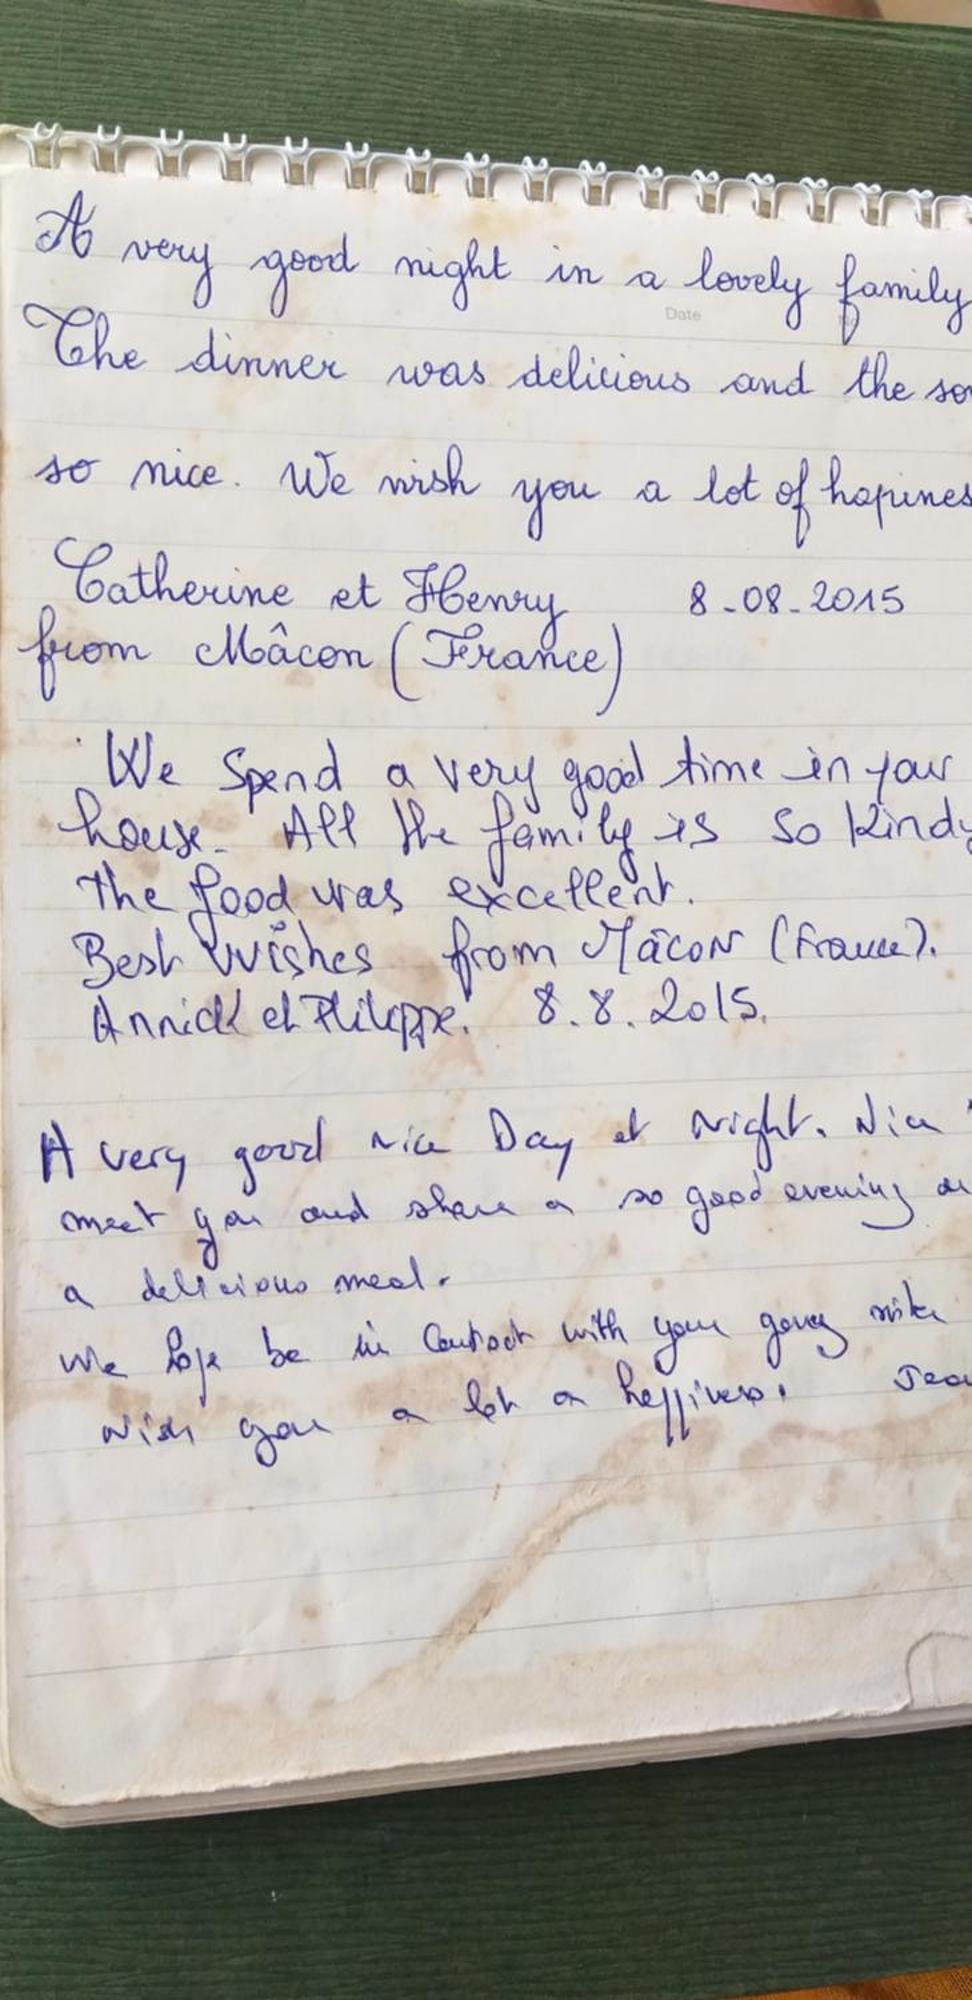 A very good night in a lovely family
Date
The dinner was delicious and the
so nice. We wish you a lot of hapines
Catherine et Henry 8-08-2015
from Mâcon (France)
We Spend a very good time in your
house. All the family is so Kindy
the food was excellent.
Best Wishes from Mâcon (France).
Annick et Philippe. 8.8.2015.
A very good nice Day et Night. Nice
meet you and share a so good evening
a delicious meal.
We hope be in Contact with your
wish you a lot a heppiness.